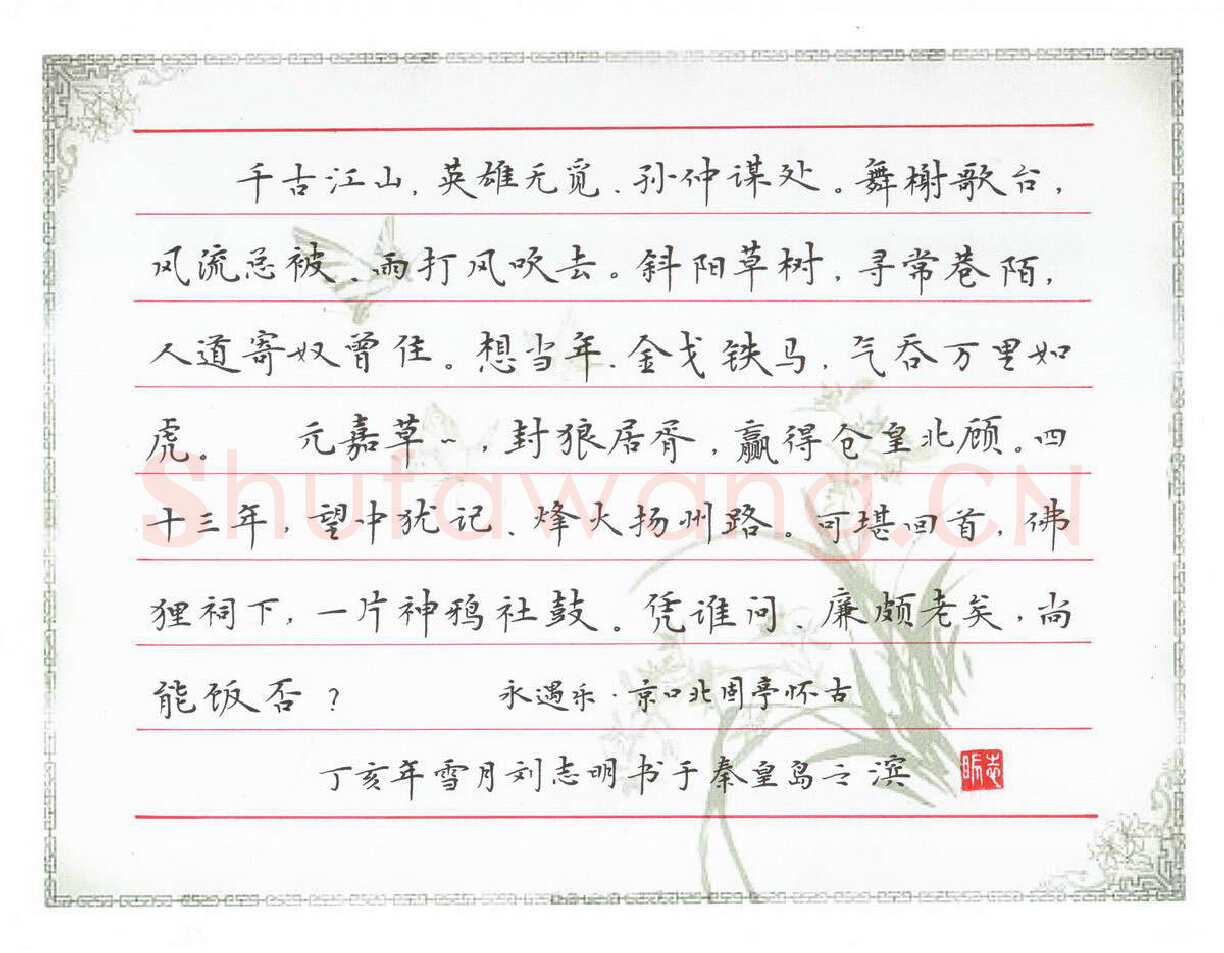 千古江山，英雄无觅、孙仲谋处。舞榭歌台，
风流总被、雨打风吹去。斜阳草树，寻常巷陌，
人道寄奴曾住。想当年、金戈铁马，气吞万里如
虎。　　元嘉草~，封狼居胥，赢得仓皇北顾。四
十三年，望中犹记、烽火扬州路。可堪回首，佛
狸祠下，一片神鸦社鼓。凭谁问、廉颇老矣，尚
能饭否？　　永遇乐·京口北固亭怀古
丁亥年雪月刘志明书于秦皇岛之滨
志明
Shufawang.CN